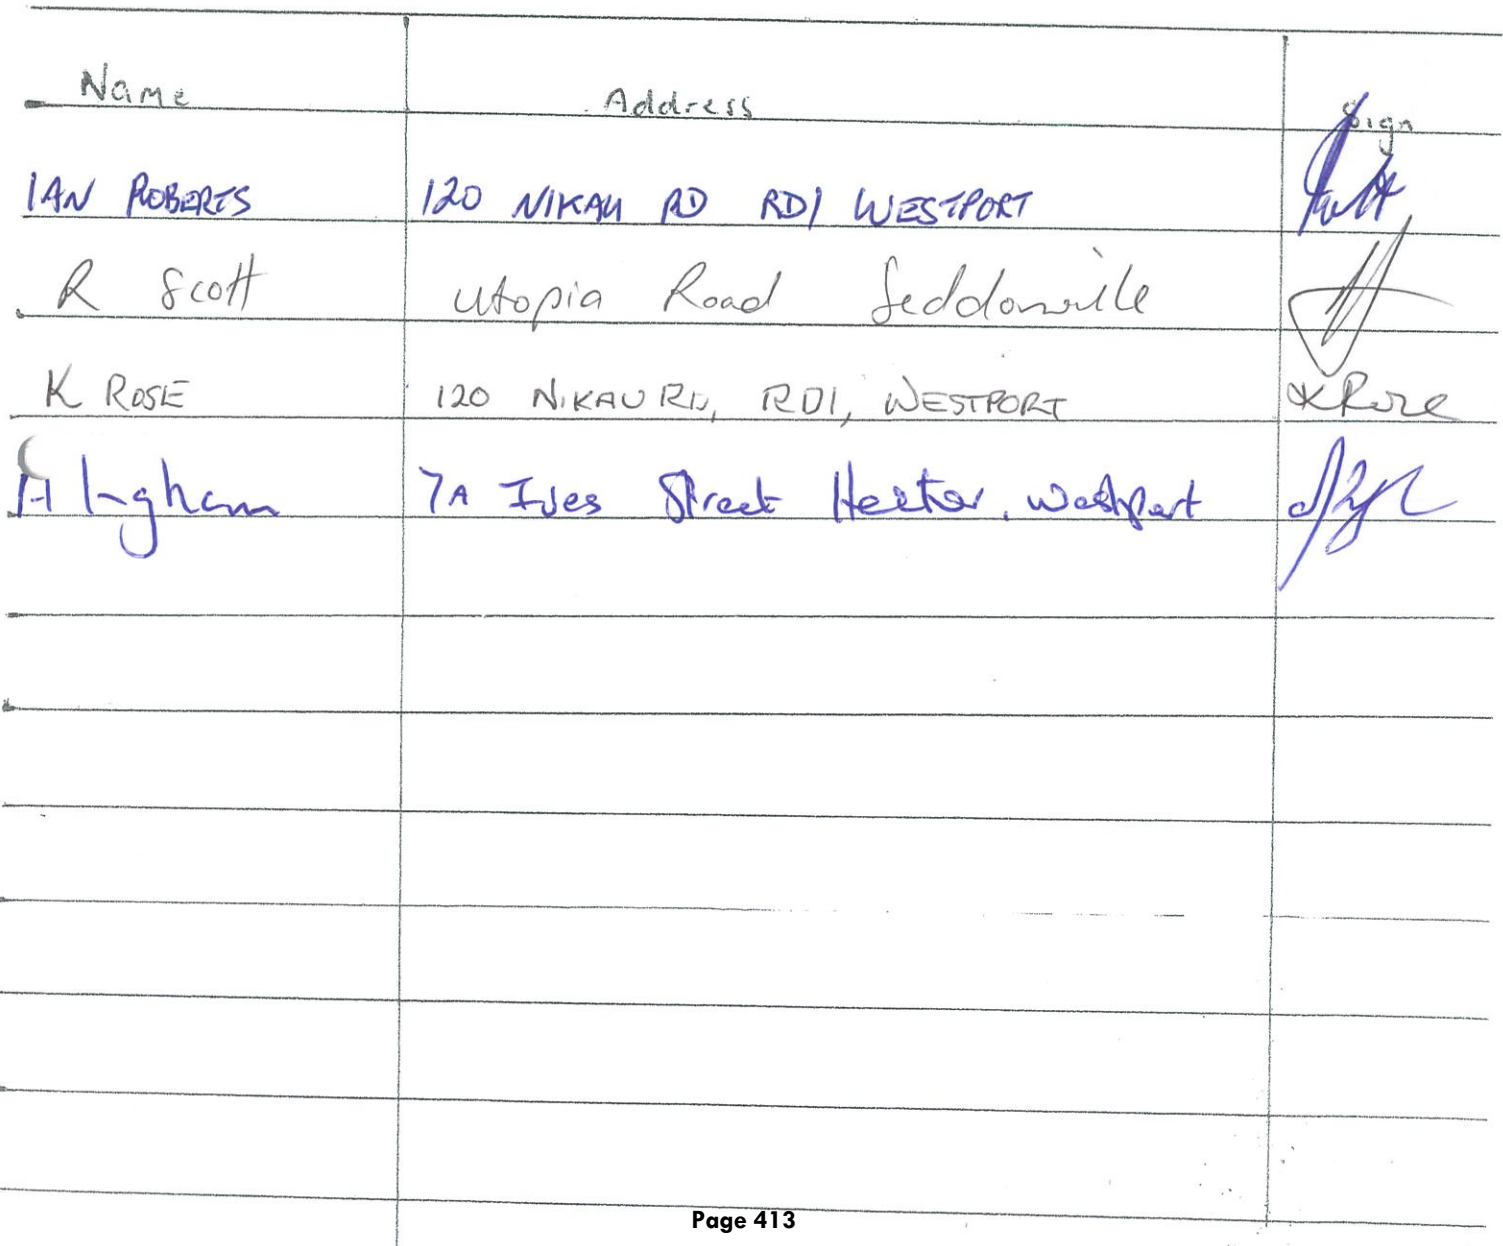 Name Address Sign
IAN ROBERTS 120 NIKAU RD RD1 WESTPORT
R Scott Utopia Road Seddonville
K ROSE 120 NIKAU RD, RD1, WESTPORT K Rose
A Ingham 7A Ives Street Hector, Westport
Page 413